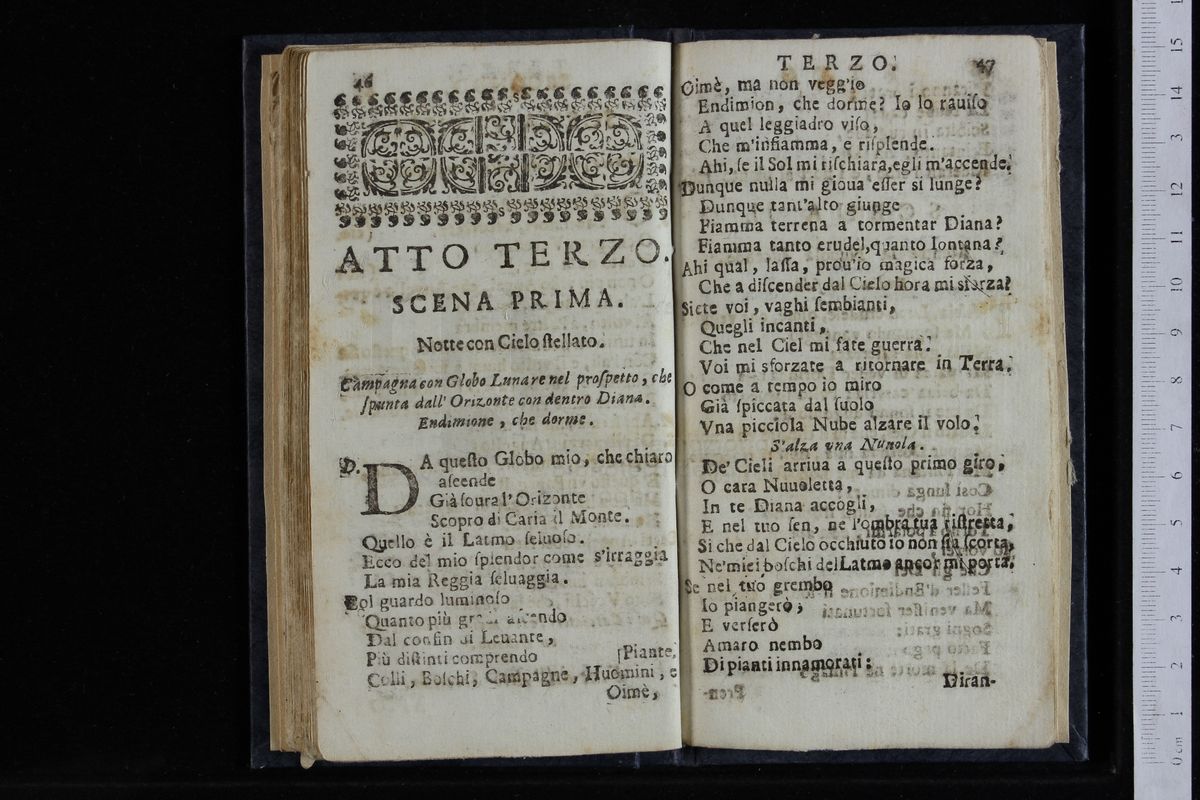 46
ATTO TERZO.
SCENA PRIMA.
Notte con Cielo stellato.
Campagna con Globo Lunare nel prospetto, che
spunta dall' Orizonte con dentro Diana.
Endimione, che dorme.
D. DA questo Globo mio, che chiaro
ascende
Già soura l'Orizonte
Scopro di Caria il Monte.
Quello è il Latmo seluoso.
Ecco del mio splendor come s'irraggia
La mia Reggia seluaggia.
Col guardo luminoso
Quanto più ascendo
Dal confin di Leuante,
Più distinti comprendo [Piante,
Colli, Boschi, Campagne, Huomini, e
Oimè,
TERZO. 47
Oimè, ma non vegg'io
Endimion, che dorme? Io lo rauiso
A quel leggiadro viso,
Che m'infiamma, e risplende.
Ahi, se il Sol mi rischiara, egli m'accende.
Dunque nulla mi gioua esser si lunge?
Dunque tant'alto giunge
Fiamma terrena a tormentar Diana?
Fiamma tanto crudel, quanto lontana?
Ahi qual, lassa, prou'io magica forza,
Che a discender dal Cielo hora mi sforza?
Siete voi, vaghi sembianti,
Quegli incanti,
Che nel Ciel mi fate guerra.
Voi mi sforzate a ritornare in Terra.
O come a tempo io miro
Già spiccata dal suolo
Vna picciola Nube alzare il volo.
S'alza vna Nuuola.
De' Cieli arriua a questo primo giro,
O cara Nuuoletta,
In te Diana accogli,
E nel tuo sen, ne l'ombra tua ristretta,
Si che dal Cielo occhiuto io non sia scorta,
Ne' miei boschi del Latmo ancor mi porta.
Se nel tuo grembo
Io piangerò,
E verserò
Amaro nembo
Di pianti innamorati:
Diran-